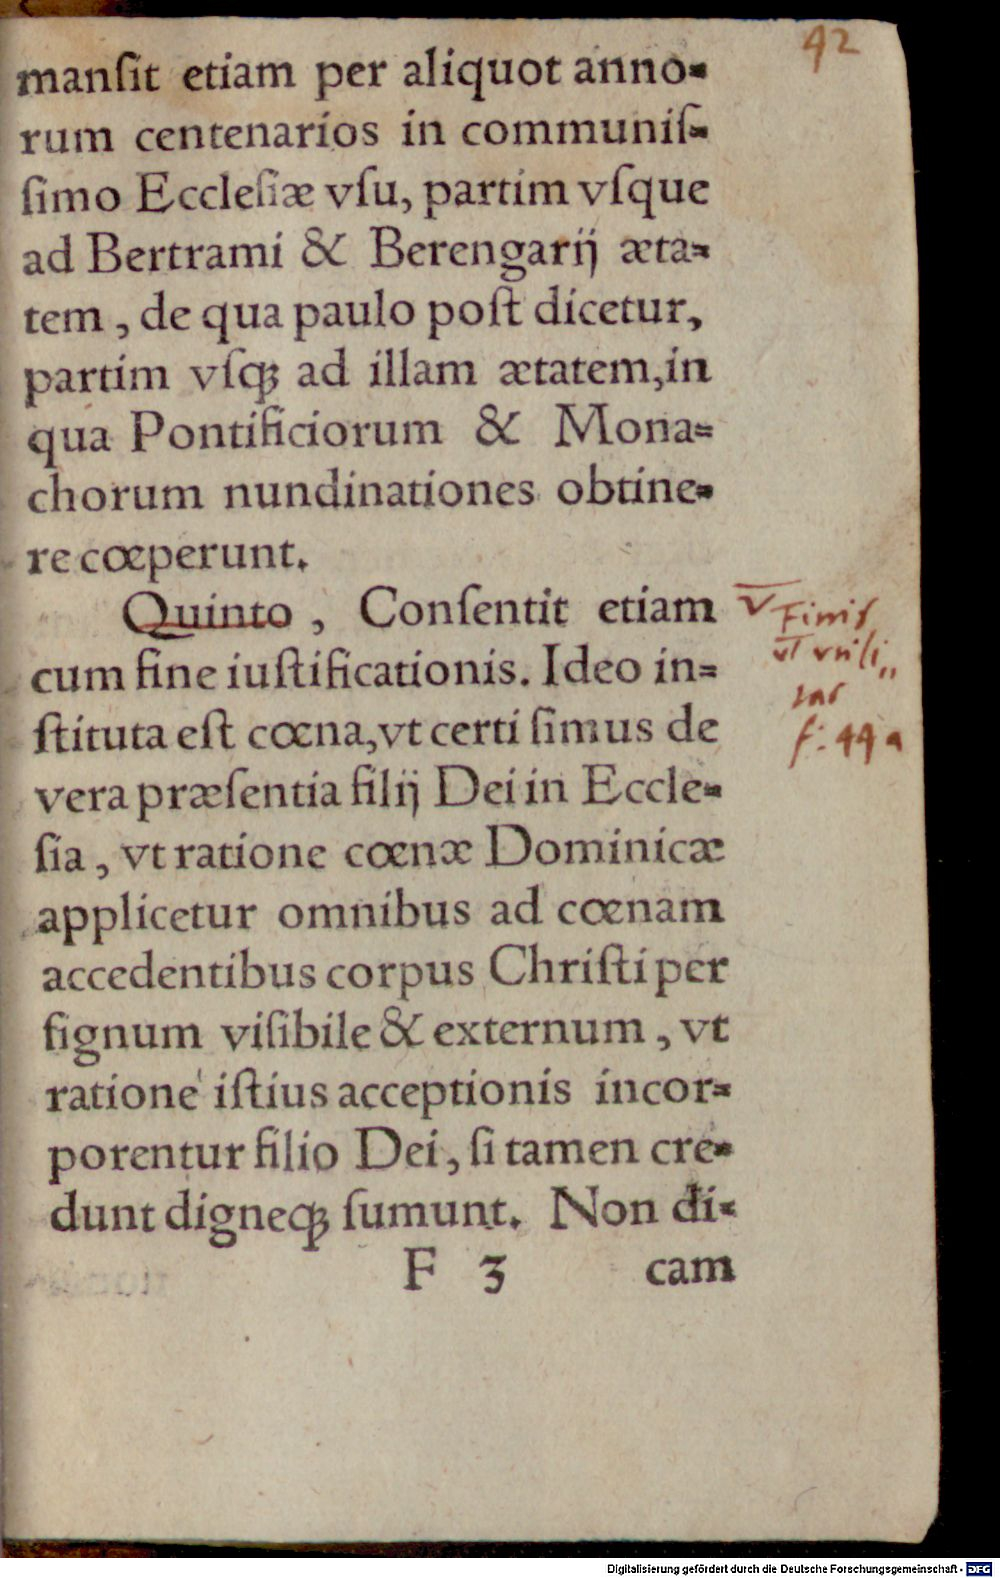 42
manſit etiam per aliquot anno-
rum centenarios in communiſ-
ſimo Eccleſiæ vſu, partim vſque
ad Bertrami & Berengarij æta-
tem, de qua paulo poſt dicetur,
partim vſqꝫ ad illam ætatem, in
qua Pontificiorum & Mona=
chorum nundinationes obtine-
re cœperunt.
Quinto, Conſentit etiam
cum fine iuſtificationis. Ideo in=
ſtituta eſt cœna, vt certi ſimus de
vera præſentia filij Dei in Eccle-
ſia, vt ratione cœnæ Dominicæ
applicetur omnibus ad cœnam
accedentibus corpus Chriſti per
ſignum viſibile & externum, vt
ratione iſtius acceptionis incor-
porentur filio Dei, ſi tamen cre-
dunt digneqꝫ ſumunt. Non di-
F 3 cam
V
Finis
vt vtili„
tas
f. 44 a
Digitalisierung gefördert durch die Deutsche Forschungsgemeinschaft - DFG